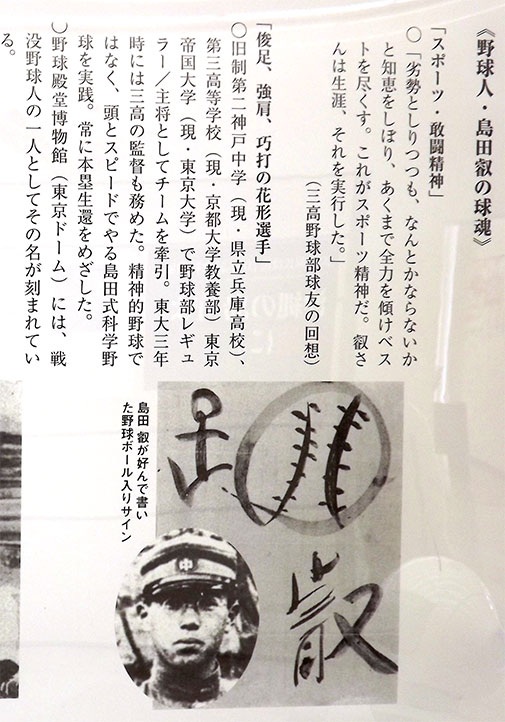 《野球人・島田叡の球魂》
「スポーツ・敢闘精神」
○「劣勢としりつつも、なんとかならないか
と知恵をしぼり、あくまで全力を傾けベス
トを尽くす。これがスポーツ精神だ。叡さ
んは生涯、それを実行した。」
（三高野球部球友の回想）
「俊足、強肩、巧打の花形選手」
○旧制第二神戸中学（現・県立兵庫高校）、
第三高等学校（現・京都大学教養部）東京
帝国大学（現・東京大学）で野球部レギュ
ラー／主将としてチームを牽引。東大三年
時には三高の監督も務めた。精神的野球で
はなく、頭とスピードでやる島田式科学野
球を実践。常に本塁生還をめざした。
○野球殿堂博物館（東京ドーム）には、戦
没野球人の一人としてその名が刻まれてい
る。
島田 叡が好んで書い
た野球ボール入りサイン
叡
中